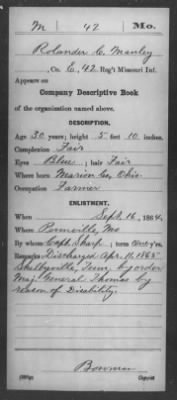 M 42 Mo.
Rolander C. Manley
, Co. E, 42 Reg't Missouri Inf.
Appears on
Company Descriptive Book
of the organization named above.
DESCRIPTION.
Age 30 years; height 5 feet 10 inches.
Complexion Fair
Eyes Blue; hair Fair
Where born Marion Co, Ohio.
Occupation Farmer
ENLISTMENT.
When Sept. 16, 1864.
Where Mo
By whom Capt. Sharp; term One y'rs.
Remarks Discharged Apr. 11, 1865
Shelbyville, Tenn. by order
Maj. General Thomas by
reason of Disability.
Bowman
Copyist